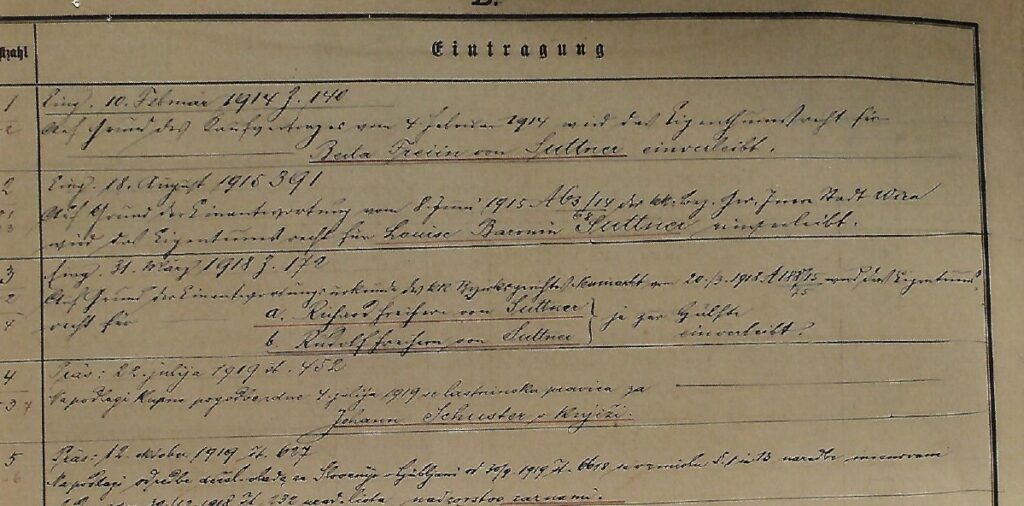 B.
Eintragung
1 Eing. 10. Februar 1914 Z. 140
Auf Grund des Kaufvertrages vom 4 Februar 1914 wird das Eigenthumsrecht für
Berta Freiin von Suttner einverleibt.
2 Eing. 18. August 1915 391
Auf Grund der Einantwortung vom 8 Juni 1915 A des kk. Bez. Ger. Innere Stadt Wien
wird das Eigentumsrecht für Louise Baronin Suttner einverleibt.
3 Eing. 31. März 1918 Z. 172
Auf Grund der Einantwortungsurkunde des kk Bezirksgerichtes vom 20./3. 1918 wird das Eigentums
recht für a. Richard Freiherr von Suttner je zur Hälfte
b. Rudolf Freiherr von Suttner einverleibt.
4 Präs: 22. julija 1919 št. 452
Na podlagi kupne pogodbe dne 4 julija 1919 se lastninska pravica za
Johann Schuster v
5 Präs: 12. oktobra 1919 št. 627
Na podlagi odredbe za Slovenijo v Ljubljani od 1919 št. 6618 se §. 1 in 13 naredbe
1918 št. 232 nadzorstvo